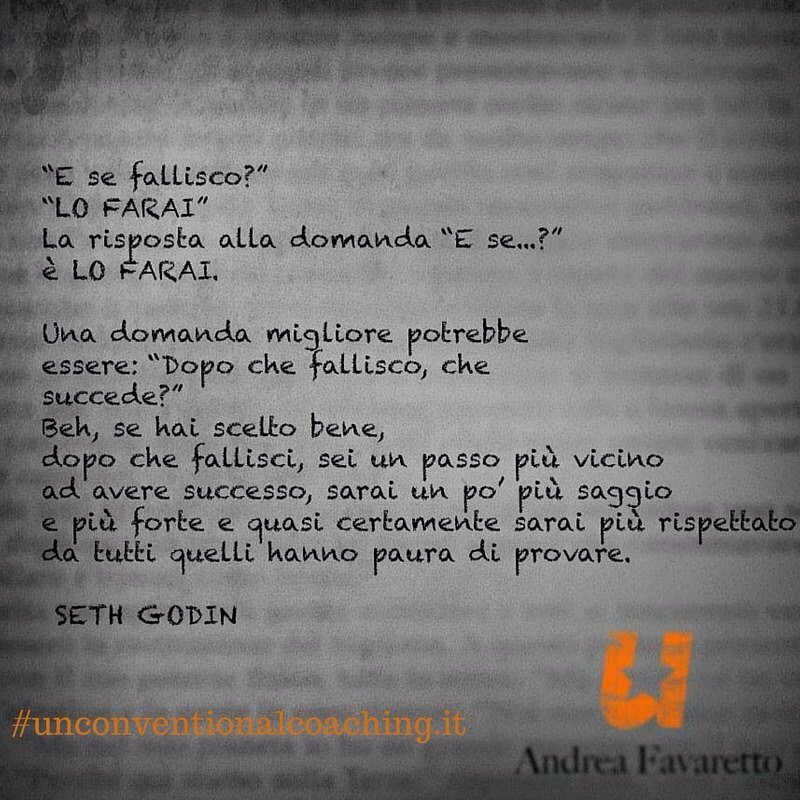 “E se fallisco?”
“LO FARAI”
La risposta alla domanda “E se...?”
è LO FARAI.
Una domanda migliore potrebbe
essere: “Dopo che fallisco, che
succede?”
Beh, se hai scelto bene,
dopo che fallisci, sei un passo più vicino
ad avere successo, sarai un po’ più saggio
e più forte e quasi certamente sarai più rispettato
da tutti quelli hanno paura di provare.
SETH GODIN
#unconventionalcoaching.it
Andrea Favaretto